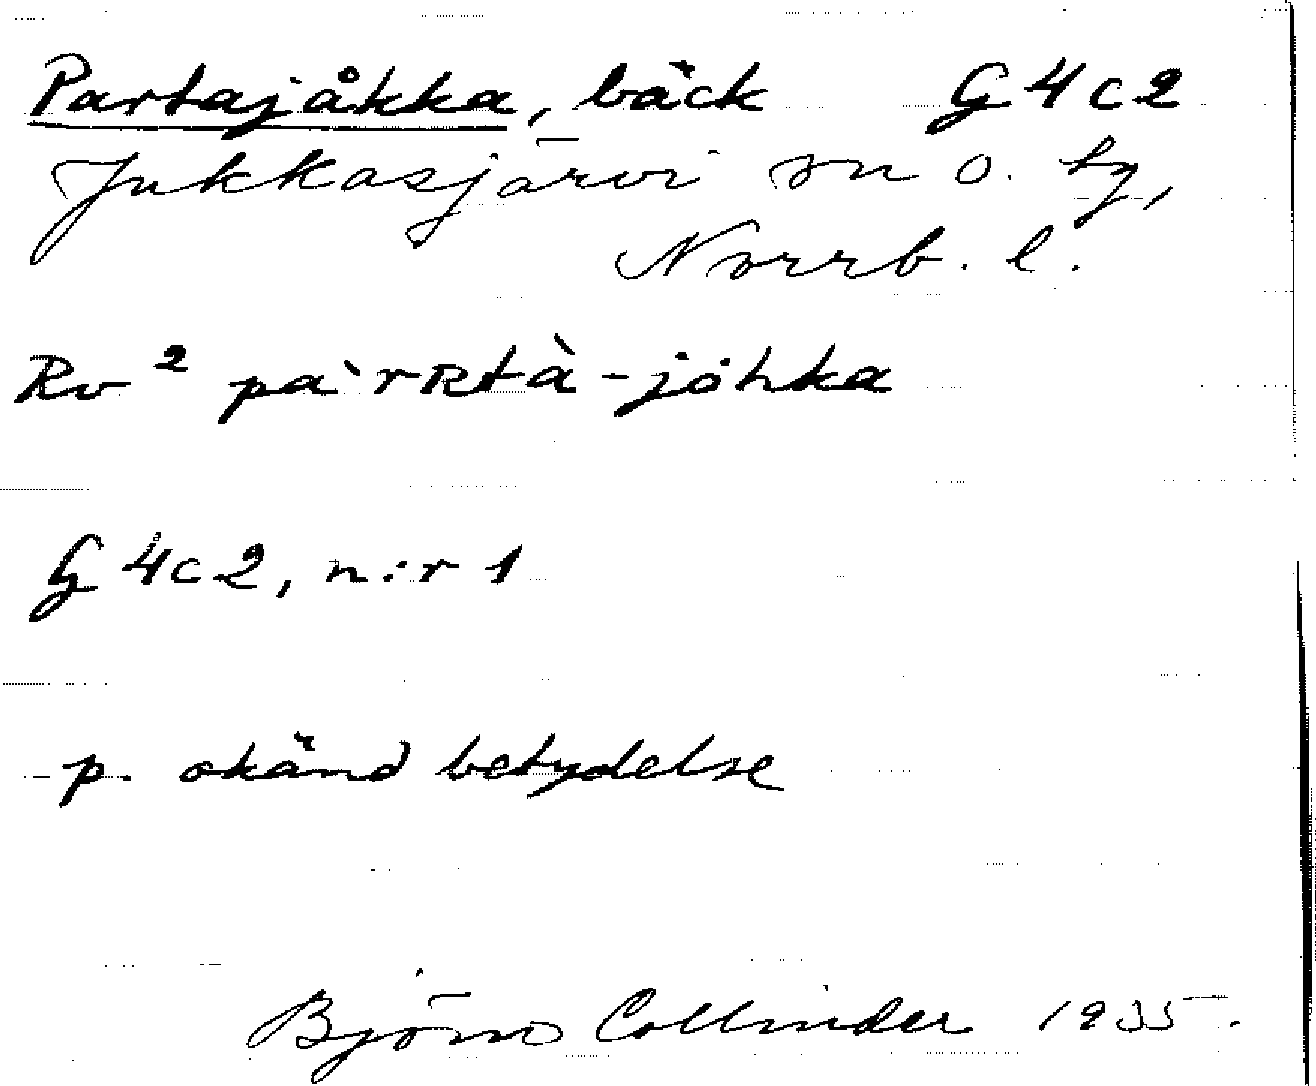 Partajåkka, bäck G 4 c 2
Jukkasjärvi sn o. tg,
Norrb. l.
Rv ² pàrRtà-jȯhka
G 4c2, n:r 1
p. okänd betydelse
Björn Collinder 1935.